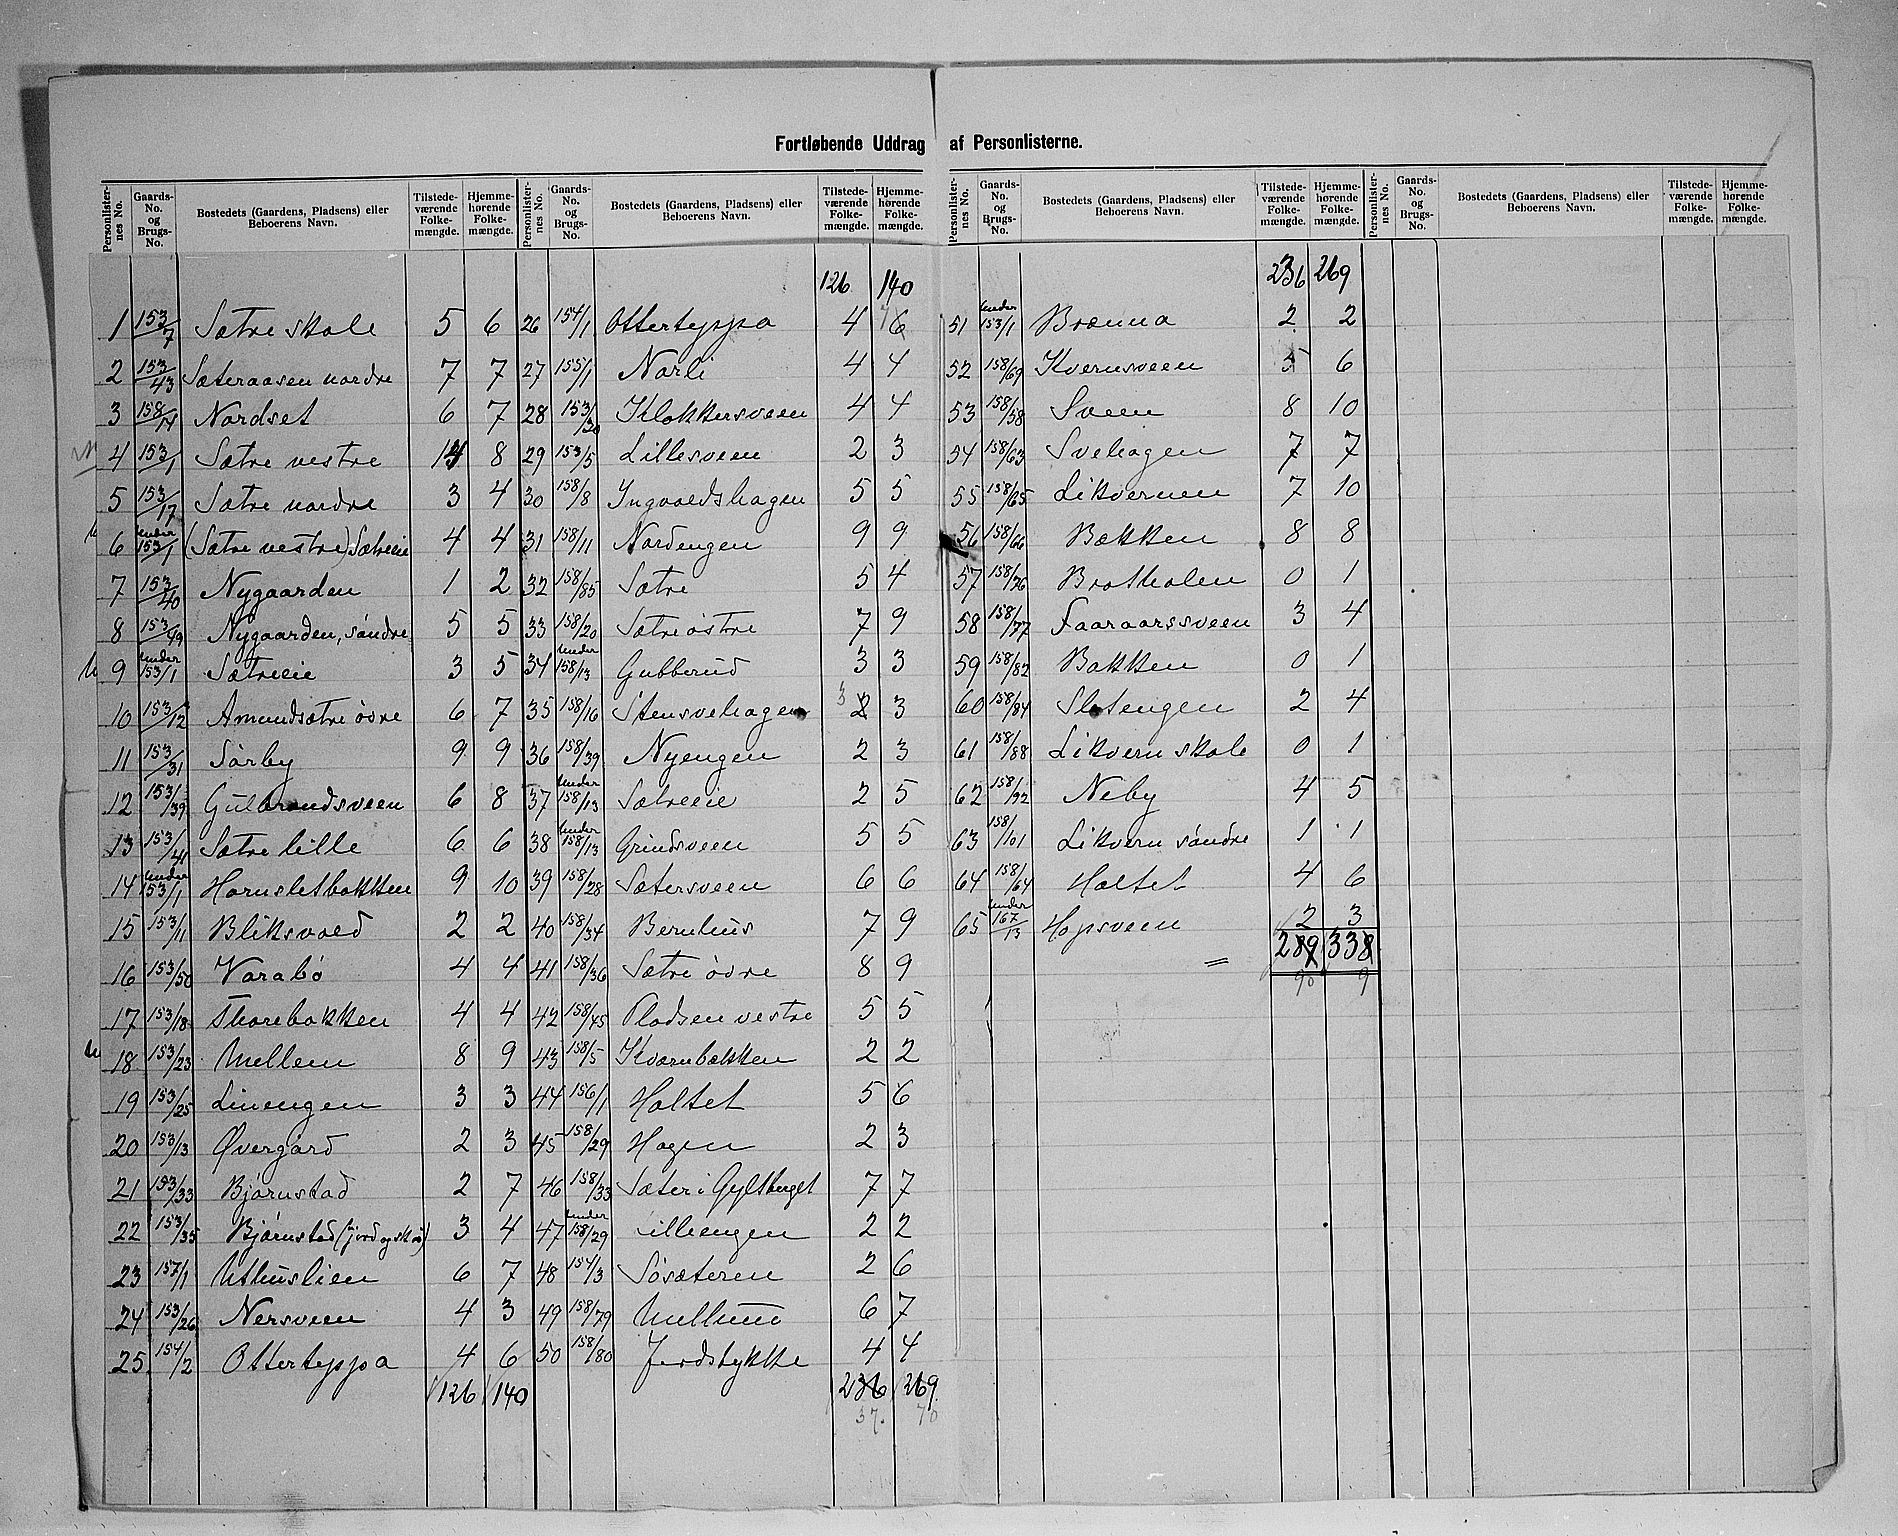 Fortløbende Uddrag af Personlisterne.
Personlisternes No. Gaards-No. og Brugs-No. Bostedets (Gaardens, Pladsens) eller Beboerens Navn. Tilstedeværende Folkemængde. Hjemmehørende Folkemængde.
1 153/7 Sætre skole 5 6
2 153/43 Sæteraasen nordre 7 7
3 158/14 Nordset 6 7
4 153/1 Sætre vestre 14 8
5 153/17 Sætre nordre 3 4
6 under 153/1 (Sætre vestre) Sætreeie 4 4
7 153/40 Nygaarden 1 2
8 153/49 Nygaarden, søndre 5 5
9 under 153/1 Sætreeie 3 5
10 153/12 Amundsætre øvre 6 7
11 153/31 Sørby 9 9
12 153/39 Gulbrandsveen 6 8
13 153/41 Sætre lille 6 6
14 under 153/1 Hornsletbakken 9 10
15 153/11 Bliksvold 2 2
16 153/50 Varabø 4 4
17 153/18 Thorebakken 4 4
18 153/23 Mellem 8 9
19 153/25 Linengen 3 3
20 153/13 Øvergård 2 3
21 153/33 Bjørnstad 2 7
22 153/35 Bjørnstad (jord og skov) 3 4
23 157/1 Uthuslien 6 7
24 153/26 Nersveen 4 3
25 154/2 Otterteppa 4 6
126 140
Personlisternes No. Gaards-No. og Brugs-No. Bostedets (Gaardens, Pladsens) eller Beboerens Navn. Tilstedeværende Folkemængde. Hjemmehørende Folkemængde.
126 140
26 154/1 Otterteppa 4 6
27 155/1 Narli 4 4
28 153/30 Klokkersveen 4 4
29 153/5 Lillesveen 2 3
30 158/8 Ingvoldshagen 5 5
31 158/11 Nordengen 9 9
32 158/85 Sætre 5 4
33 158/20 Sætre østre 7 9
34 under 158/13 Gubberud 3 3
35 158/16 Stensvehagen 3 2 3
36 158/39 Nyengen 2 3
37 under 158/13 Sætreeie 2 5
38 under 158/13 Grindsveen 5 5
39 158/28 Sætersveen 6 6
40 158/34 Bernhus 7 9
41 158/36 Sætre øvre 8 9
42 158/45 Pladsen vestre 5 5
43 158/5 Kvernbækken 2 2
44 156/1 Holtet 5 6
45 158/29 Hagen 2 3
46 158/33 Sæter i Gyltberget 7 7
47 under 158/29 Lilleengen 2 2
48 154/3 Søsæteren 2 6
49 158/79 Mellumo 6 7
50 158/80 Jordstykke 4 4
236 269
37. 70
Personlisternes No. Gaards-No. og Brugs-No. Bostedets (Gaardens, Pladsens) eller Beboerens Navn. Tilstedeværende Folkemængde. Hjemmehørende Folkemængde.
236 269
51 under 153/1 Brænna 2 2
52 158/69 Kvernsveen 5 6
53 158/58 Sveen 8 10
54 158/63 Svehagen 7 7
55 158/65 Likvernen 7 10
56 158/66 Bækken 8 8
57 158/76 Bratholen 0 1
58 158/77 Faaraarssveen 3 4
59 158/82 Bakken 0 1
60 158/84 Sletengen 2 4
61 158/88 Likvern skole 0 1
62 158/92 Neby 4 5
63 158/101 Likvern søndre 1 1
64 158/64 Holtet 4 6
65 under 167/13 Hopsveen 2 3
= 289 338
90 9
Personlisternes No. Gaards-No. og Brugs-No. Bostedets (Gaardens, Pladsens) eller Beboerens Navn. Tilstedeværende Folkemængde. Hjemmehørende Folkemængde.